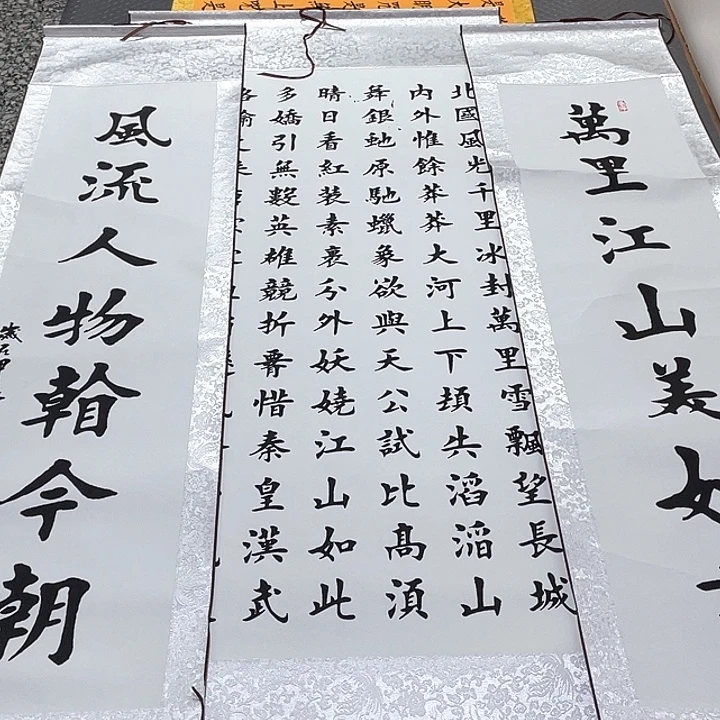 萬里江山美如
北國風光千里冰封萬里雪飄望長城
内外惟餘莽莽大河上下頓失滔滔山
舞銀蛇原馳蠟象欲與天公試比高須
晴日看紅装素裹分外妖嬈江山如此
多嬌引無數英雄競折腰惜秦皇漢武
風流人物看今朝